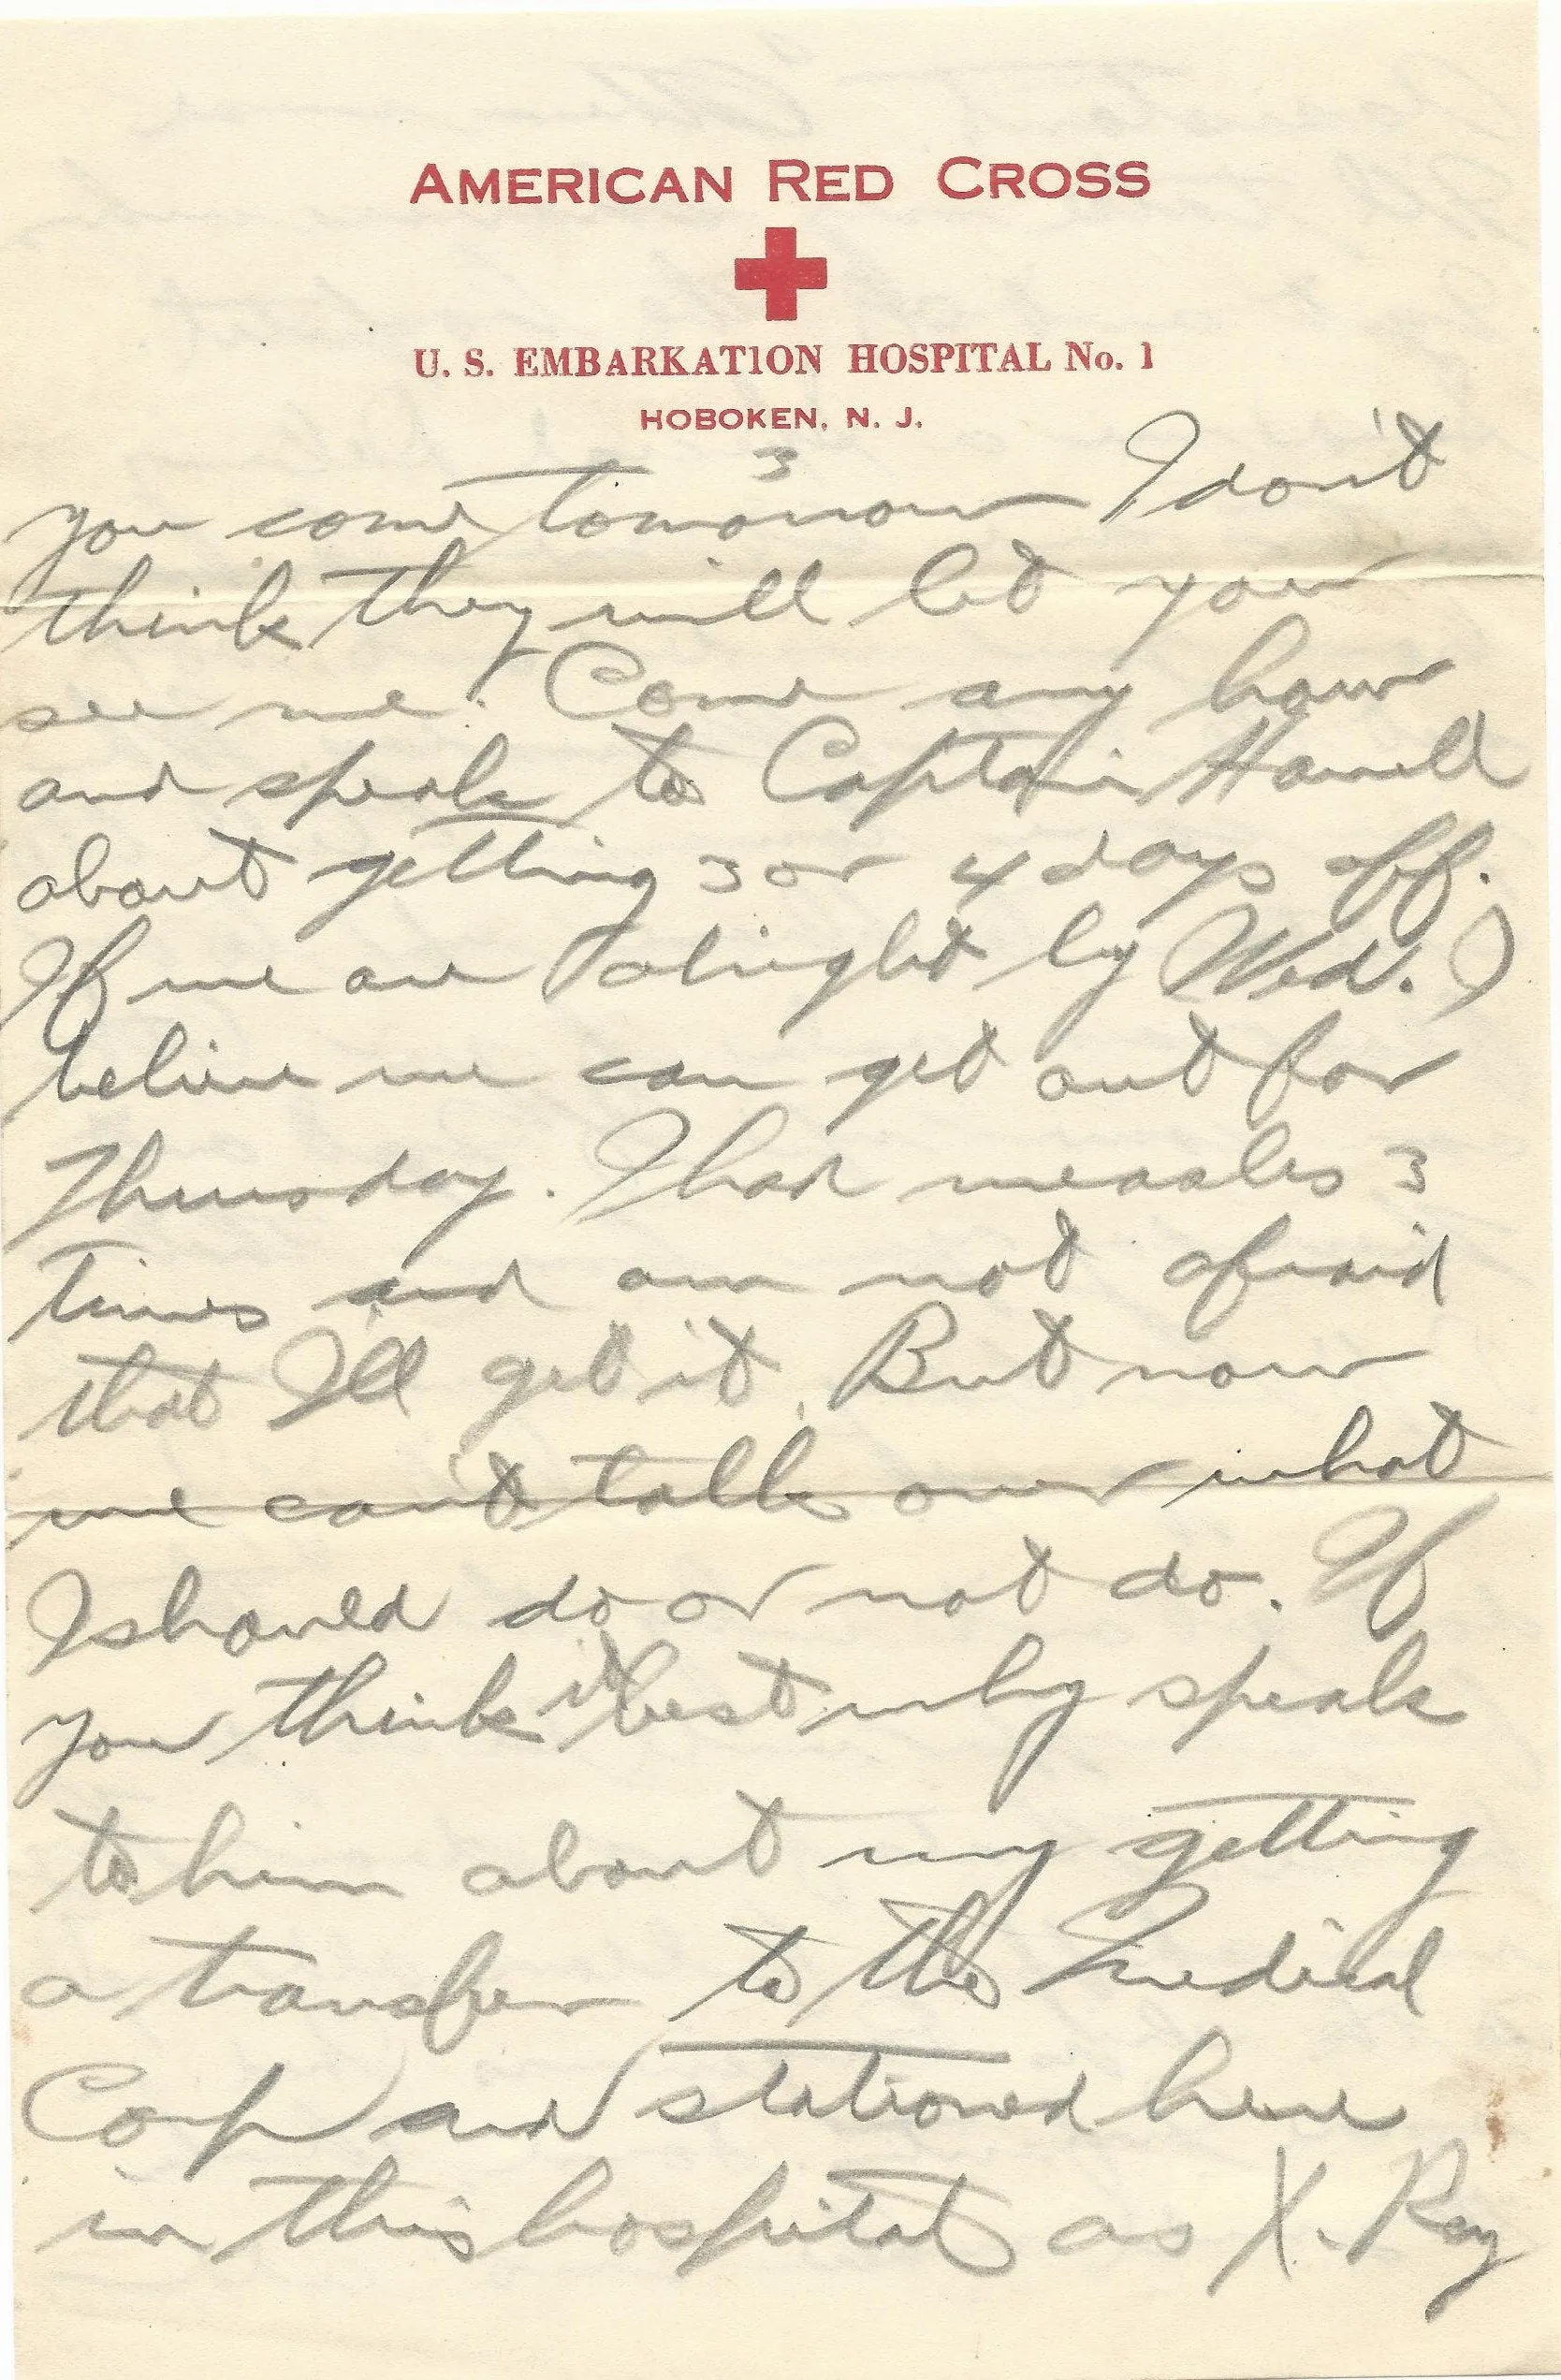 AMERICAN RED CROSS
U. S. EMBARKATION HOSPITAL No. 1
HOBOKEN, N. J.
3
you come tomorrow I don't
think they will let you
see me. Come any how
and speak to Captain Harrell
about getting 3 or 4 days off.
If we are alright by Wed. I
believe we can get out for
Thursday. I had measles 3
times and am not afraid
that I'll get it. But now
we can't talk over what
I should do or not do. If
you think it best why speak
to him about my getting
a transfer to the Medical
Corp and stationed here
in this hospital as X. Ray